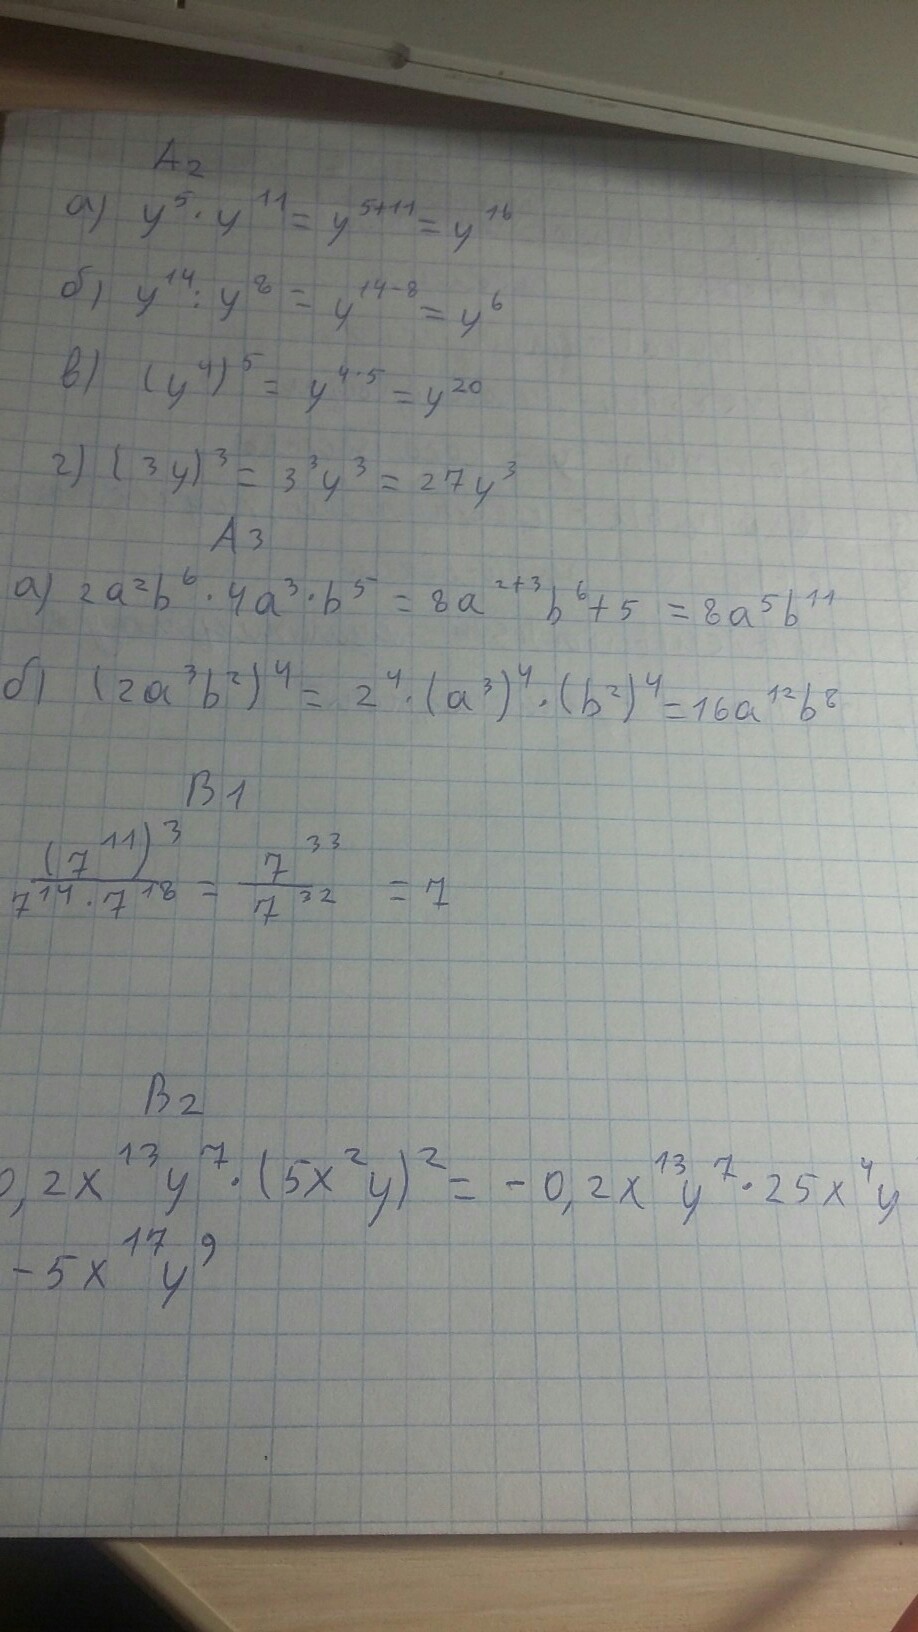 А2
а) y⁵·y¹¹=y⁵⁺¹¹=y¹⁶
б) y¹⁴:y⁸=y¹⁴⁻⁸=y⁶
в) (y⁴)⁵=y⁴·⁵=y²⁰
г) (3y)³=3³y³=27y³
А3
а) 2a²b⁶·4a³·b⁵=8a²⁺³b⁶+5=8a⁵b¹¹
б) (2a³b²)⁴=2⁴·(a³)⁴·(b²)⁴=16a¹²b⁸
В1
(7¹¹)³/7¹⁴·7¹⁸=7³³/7³²=7
В2
0,2x¹³y⁷·(5x²y)²=-0,2x¹³y⁷·25x⁴y
-5x¹⁷y⁹